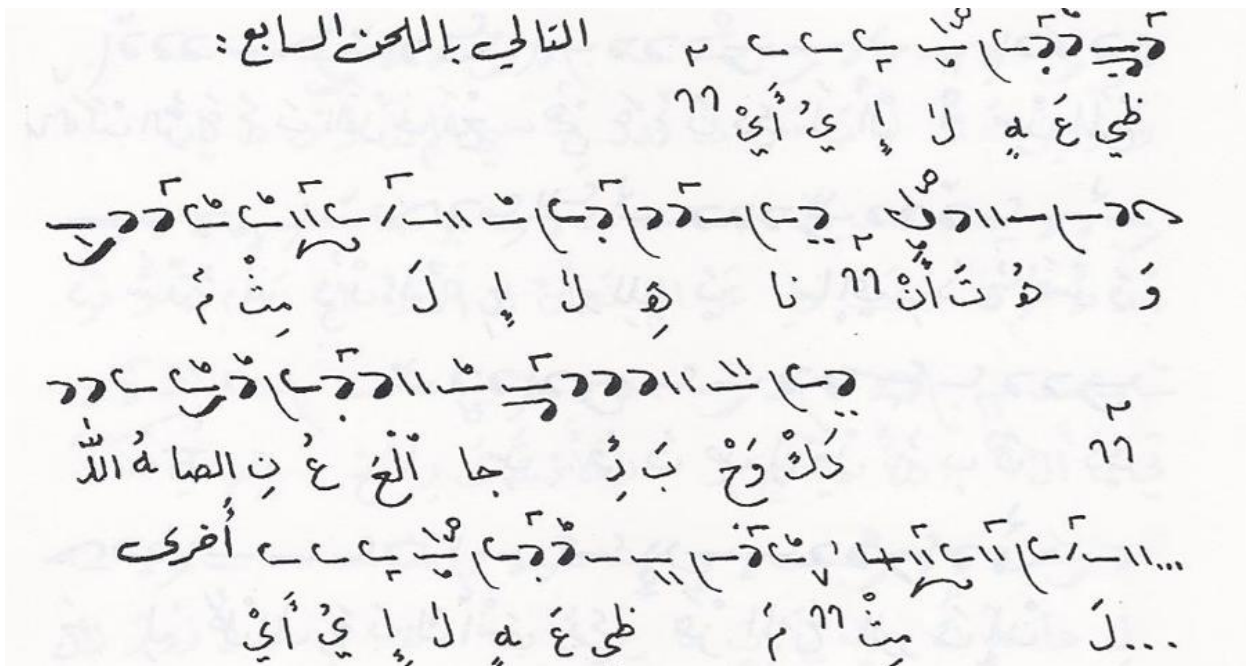 التالي باللحن السابع :
ظي عَ هٍ لٰ إِ يُ أَيْ
وَ هُ تَ أَنْ نا هِ لٰ إِ لَ مِثْ مَ
دَكْ وَحْ بَ ئِ جا اَلْعَ عُ نِ الصا هُ اللّٰ
أُخرى
...لَ مِثْ مَ ظي عَ هٍ لٰ إِ يُ أَيْ